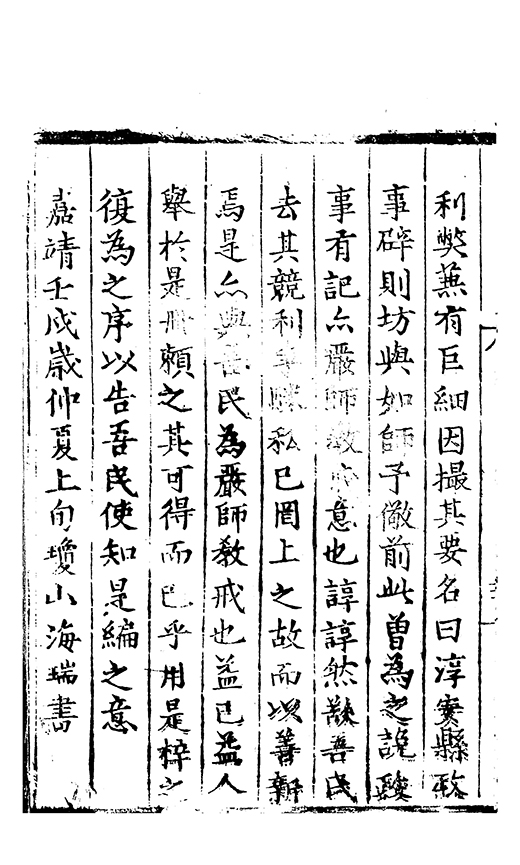 利獘蕪有巨細因撮其要名曰淳安縣政
事辟則坊與如師予儆前此曽為之說
事有記亦嚴師教意也諄諄然吾民
去其競利爭私已罔上之故而以善新
焉是亦與吾民為嚴師教戒也益已益人
舉於是冊頼之其可得而已乎用是梓之
復為之序以告吾民使知是編之意
嘉靖壬戌歲仲夏上旬瓊山海瑞書